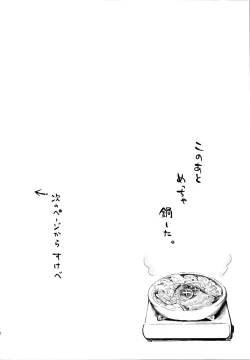 このあと
めっちゃ
鍋した。
次のページから すけべ
←